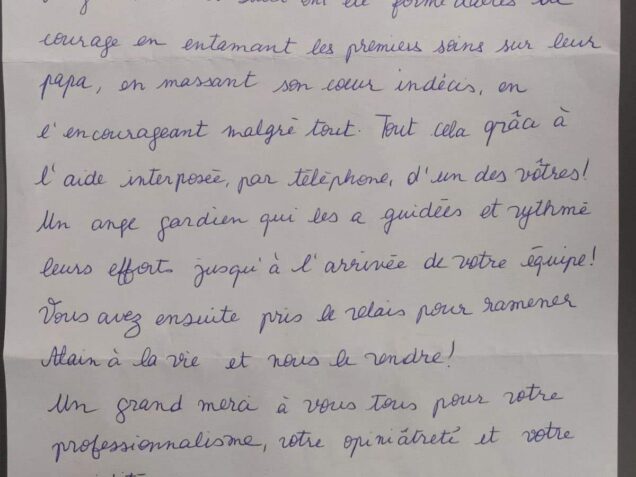 ont été formidables de
courage en entamant les premiers soins sur leur
papa, en massant son cœur indécis, en
l'encourageant malgré tout. Tout cela grâce à
l'aide interposée, par téléphone, d'un des vôtres!
Un ange gardien qui les a guidées et rythmé
leurs efforts jusqu'à l'arrivée de votre équipe!
Vous avez ensuite pris le relais pour ramener
Alain à la vie et nous le rendre!
Un grand merci à vous tous pour votre
professionnalisme, votre opiniâtreté et votre